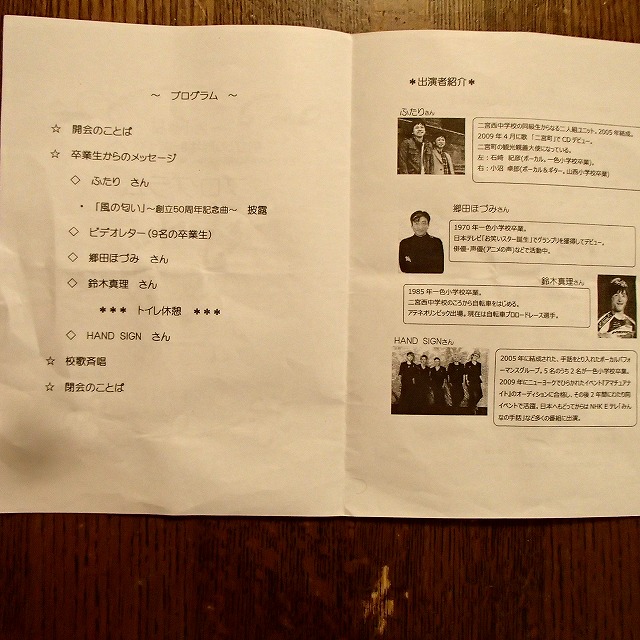 ～ プログラム ～
☆ 開会のことば
☆ 卒業生からのメッセージ
◇ ふたり さん
・「風の匂い」～創立50周年記念曲～ 披露
◇ ビデオレター（9名の卒業生）
◇ 郷田ほづみ さん
◇ 鈴木真理 さん
＊＊＊ トイレ休憩 ＊＊＊
◇ HAND SIGN さん
☆ 校歌斉唱
☆ 閉会のことば
＊出演者紹介＊
ふたりさん
二宮西中学校の同級生からなる二人組ユニット。2005年結成。
2009年4月に歌「二宮町」でCDデビュー。
二宮町の観光親善大使になっている。
左：石崎 紀彦（ボーカル。一色小学校卒業）
右：小沼 卓郎（ボーカル＆ギター。山西小学校卒業）
郷田ほづみさん
1970年一色小学校卒業。
日本テレビ「お笑いスター誕生」でグランプリを獲得してデビュー。
俳優・声優（アニメの声）などで活動中。
鈴木真理さん
1985年一色小学校卒業。
二宮西中学校のころから自転車をはじめる。
アテネオリンピック出場。現在は自転車プロロードレース選手。
HAND SIGNさん
2005年に結成された、手話をとり入れたボーカルパフォ
ーマンスグループ。5名のうち2名が一色小学校卒業。
2009年にニューヨークでひらかれたイベント「アマチュアナ
イト」のオーディションに合格し、その後2年間にわたり同
イベントで活躍。日本へもどってからはNHK Eテレ「みん
なの手話」など多くの番組に出演。